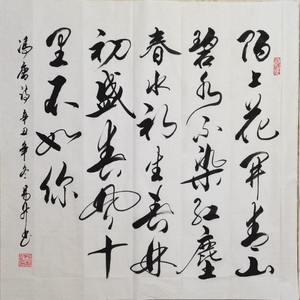 陌上花开青山
碧水不染红塵
春水初生春林
初盛春风十
里不如你
冯唐诗辛丑年冬